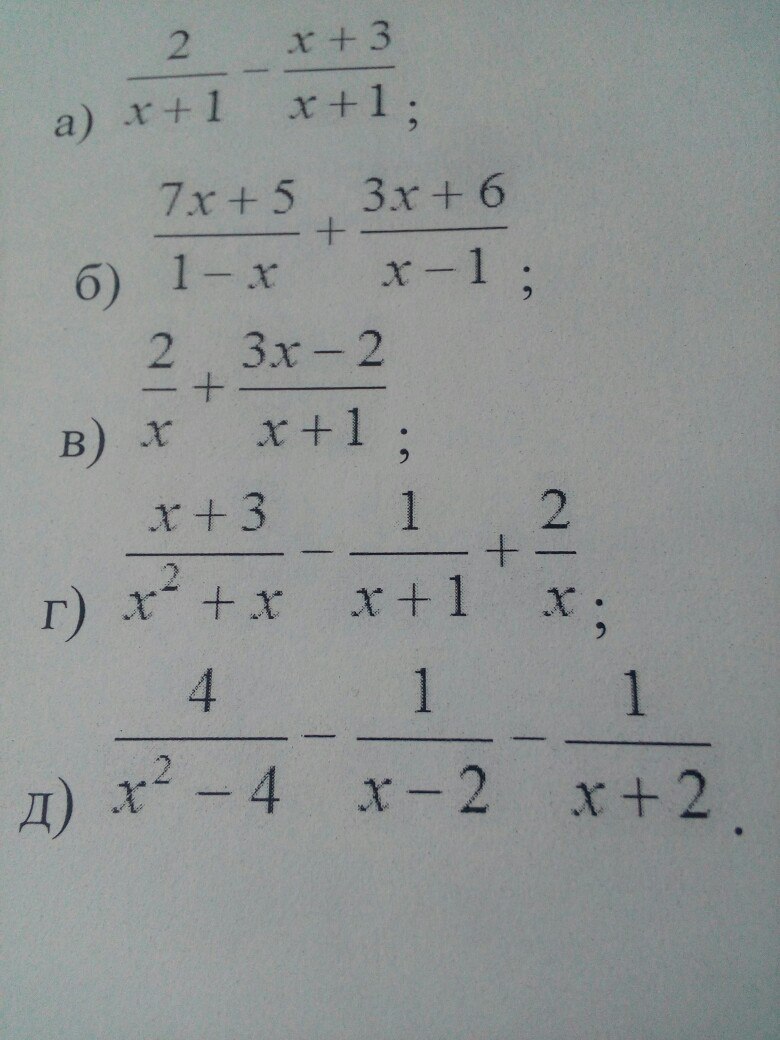 а) \frac{2}{x+1} - \frac{x+3}{x+1};
б) \frac{7x+5}{1-x} + \frac{3x+6}{x-1};
в) \frac{2}{x} + \frac{3x-2}{x+1};
г) \frac{x+3}{x^2+x} - \frac{1}{x+1} + \frac{2}{x};
д) \frac{4}{x^2-4} - \frac{1}{x-2} - \frac{1}{x+2}.